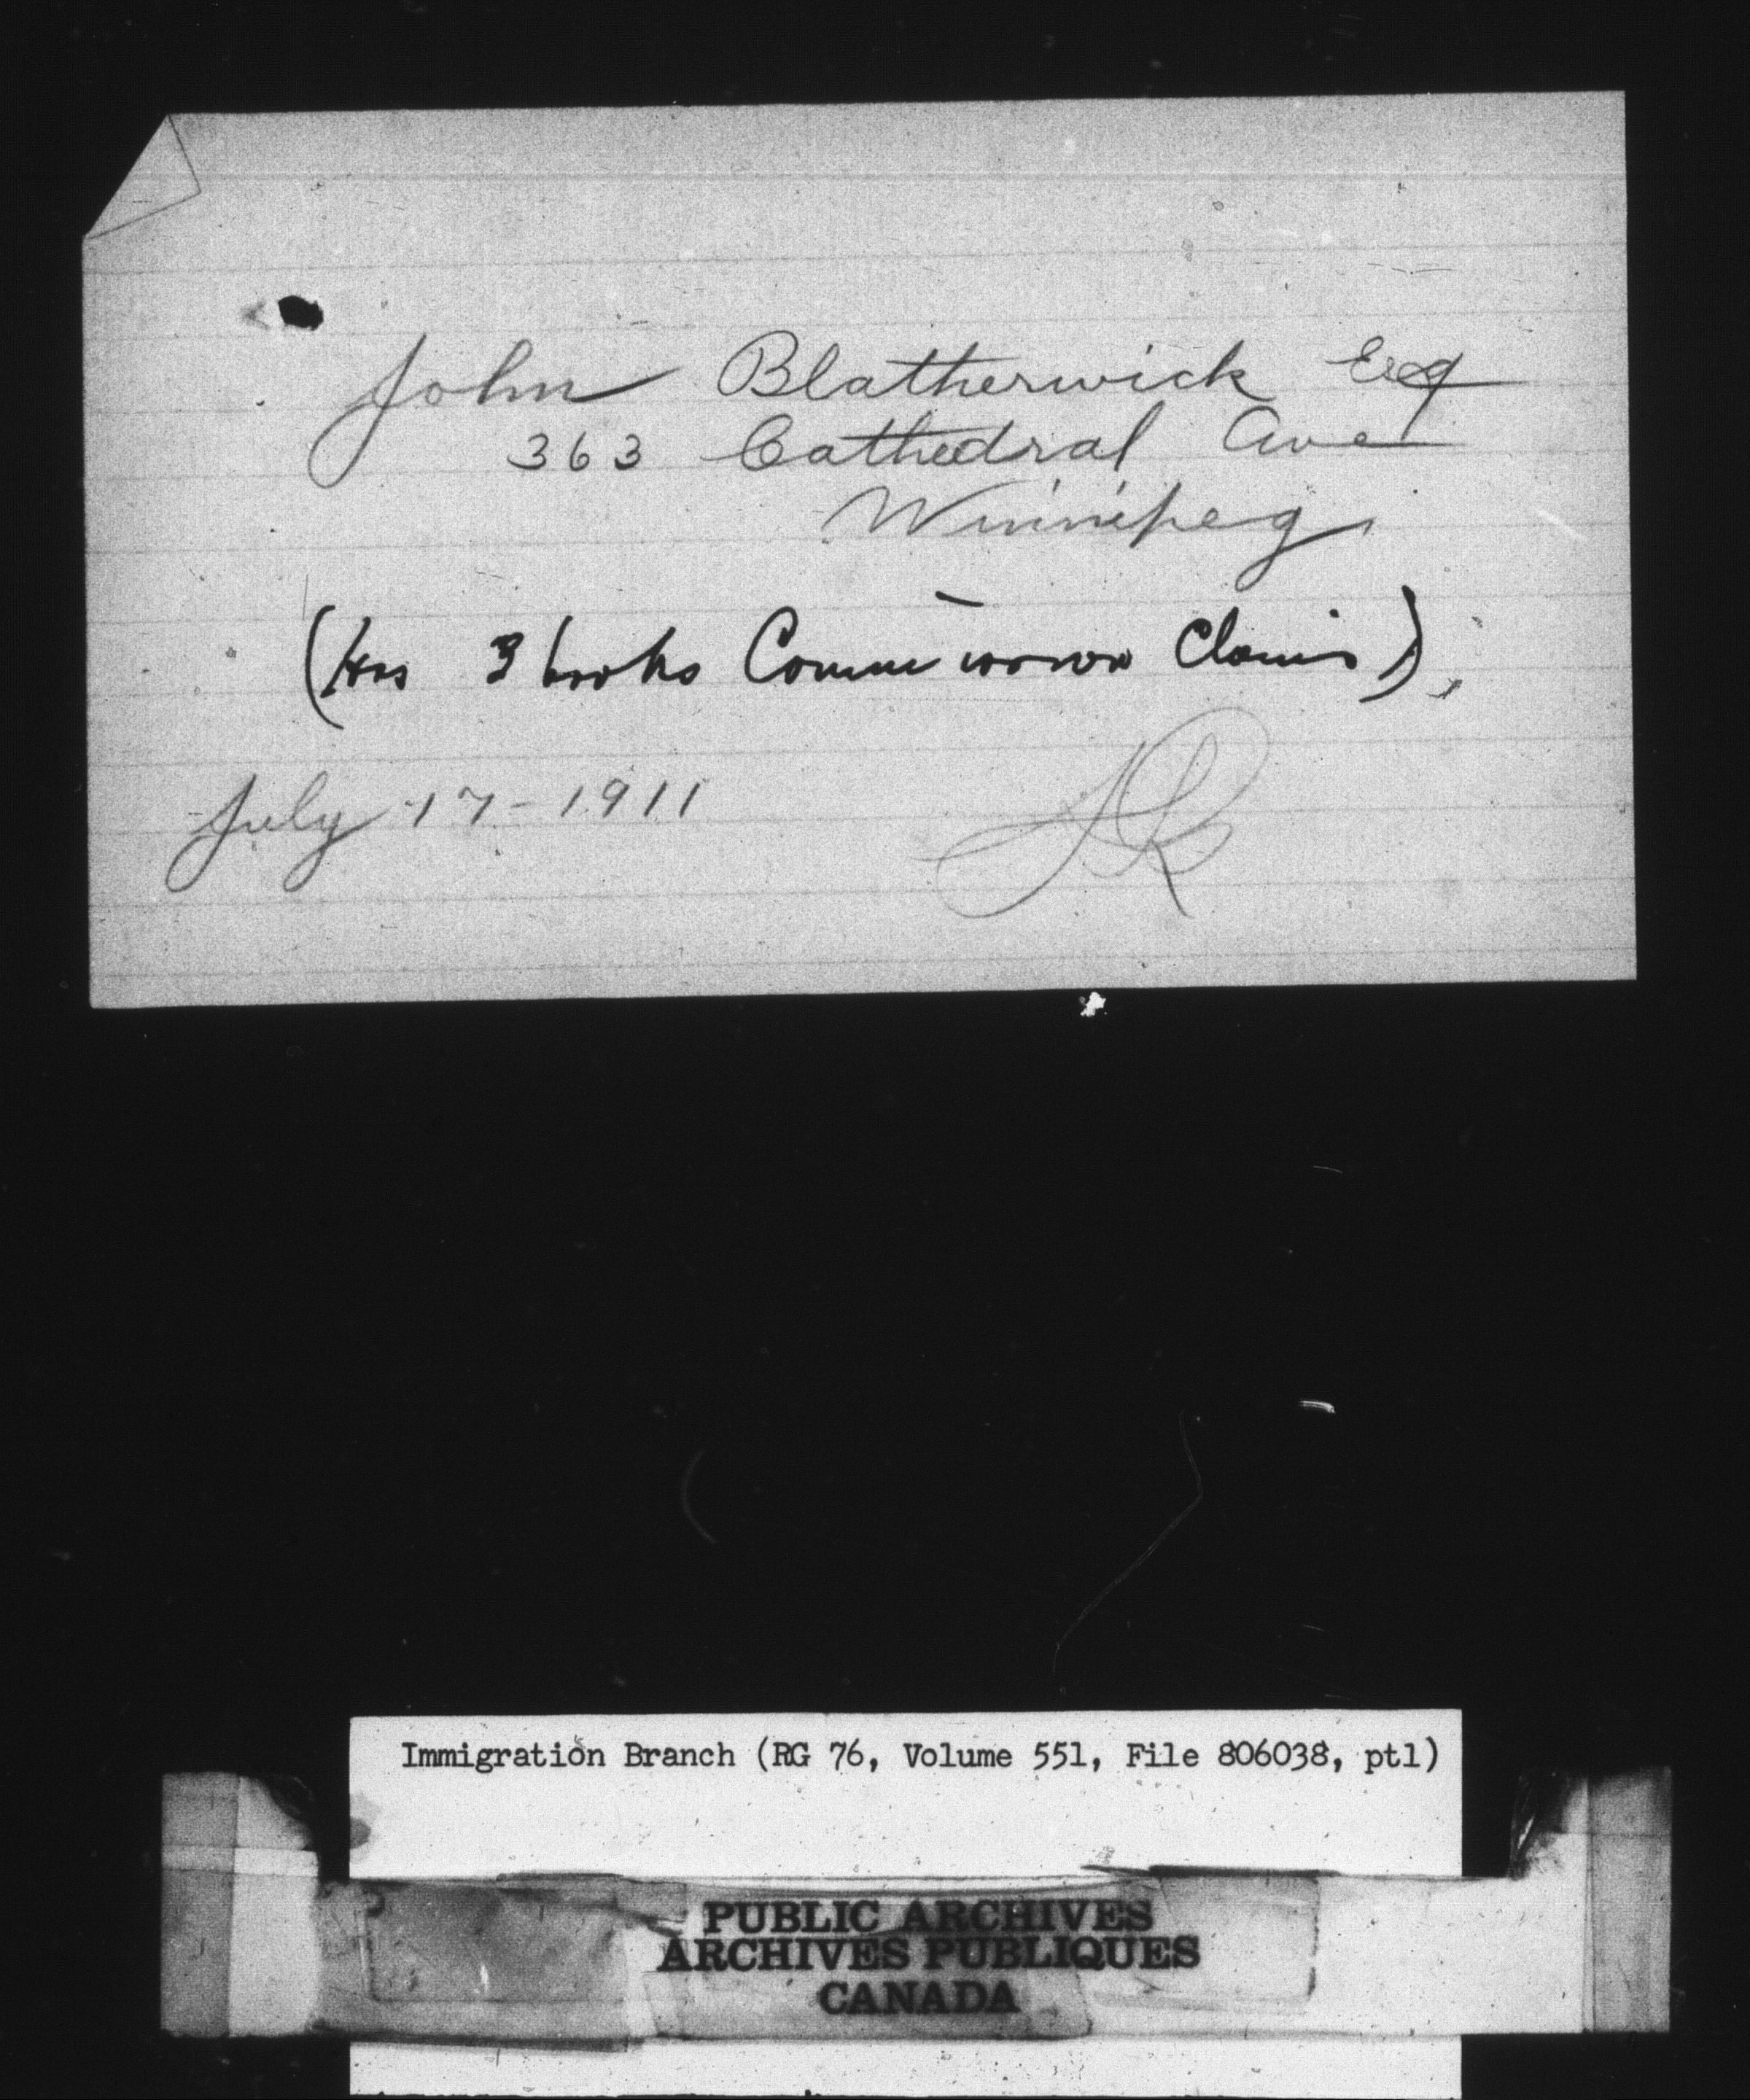 John Blatherwick Esq
363 Cathedral Ave
Winnipeg
(Has 3 books Commission Claims).
July 17-1911
Immigration Branch (RG 76, Volume 551, File 806038, pt1)
PUBLIC ARCHIVES
ARCHIVES PUBLIQUES
CANADA